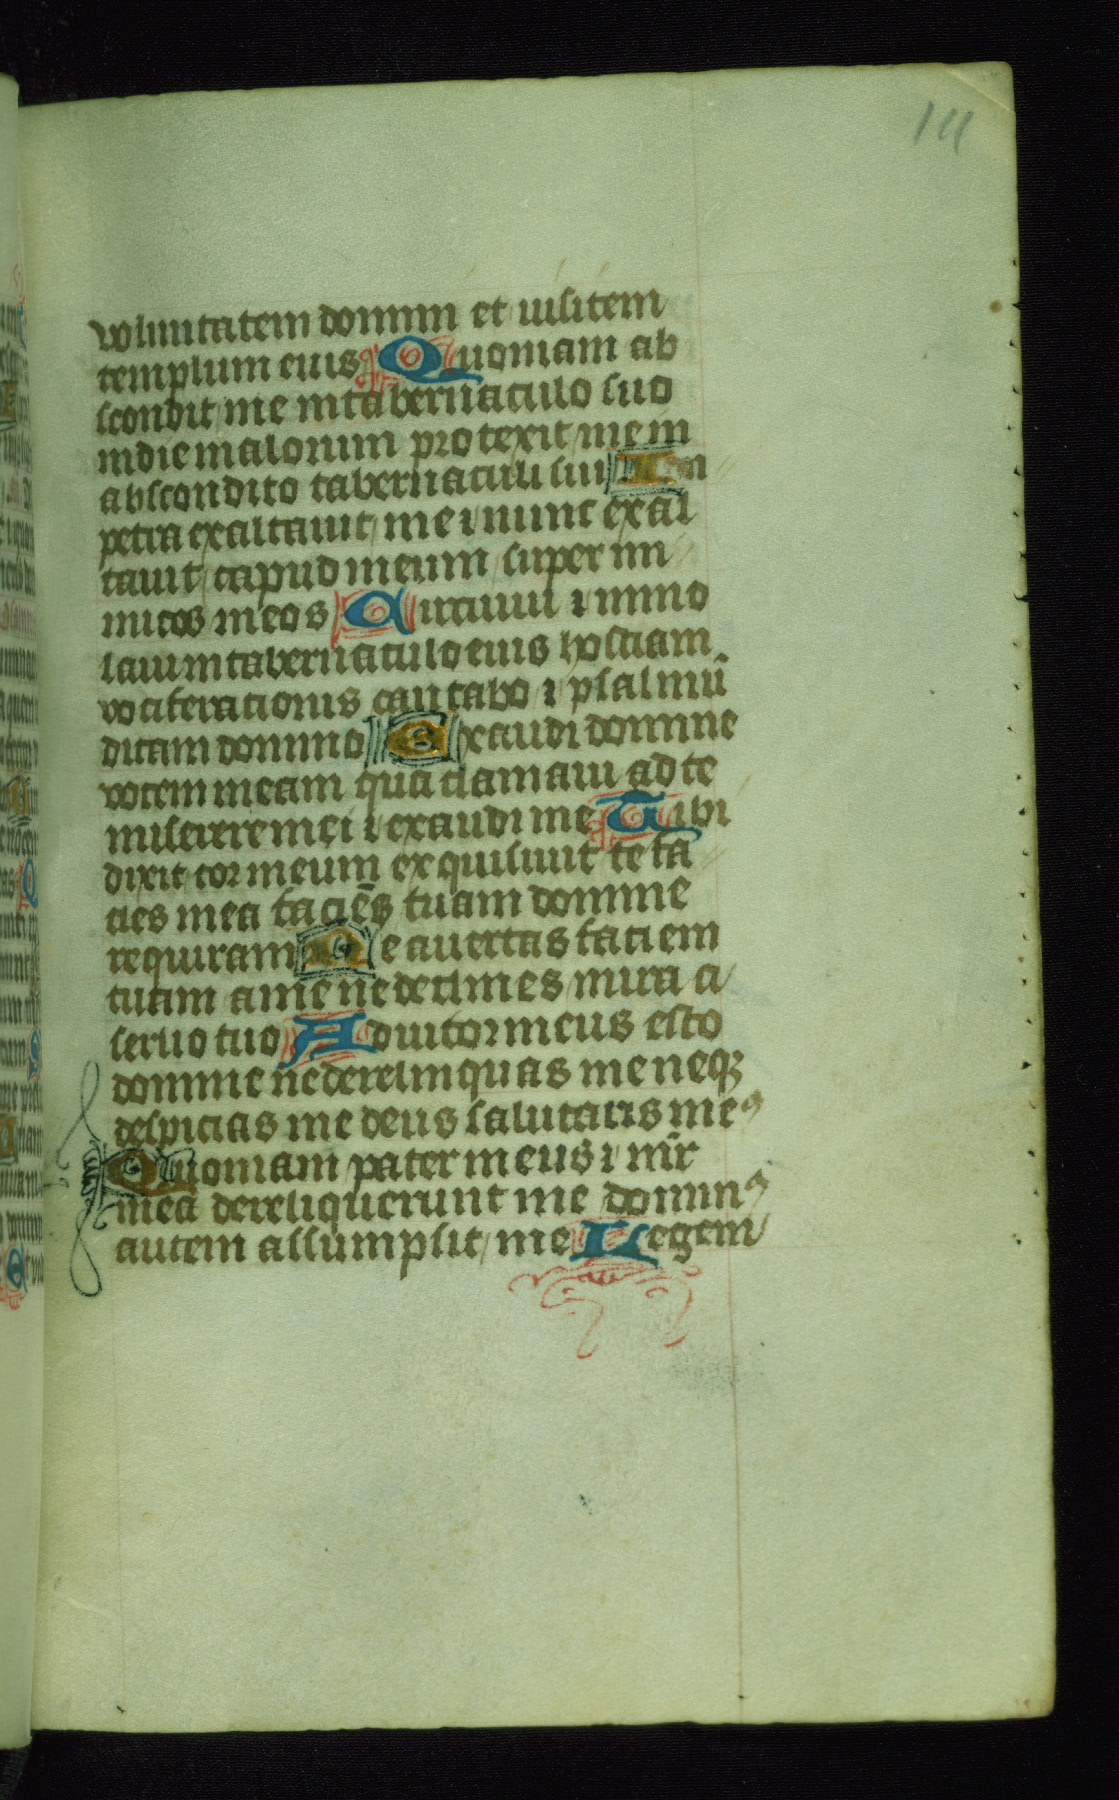 111
voluntatem domini et uisitem
templum eius Quoniam ab
scondit me in tabernaculo suo
in die malorum protexit me in
abscondito tabernaculi sui In
petra exaltauit me ⁊ nunc exal
tauit capud meum super ini
micos meos Circuiui ⁊ immo
laui in tabernaculo eius hostiam
vociferationis cantabo ⁊ psalmū
dicam domino Exaudi domine
vocem meam qua clamaui ad te
miserere mei ⁊ exaudi me Tibi
dixit cor meum exquisiuit te fa
cies mea faciēs tuam domine
requiram Ne auertas faciem
tuam a me ne declines in ira a
seruo tuo Adiutor meus esto
domine ne derelinquas me neqꝫ
despicias me deus salutaris meꝰ
Quoniam pater meus ⁊ mr̄
mea dereliquerunt me dominꝰ
autem assumpsit me Legem